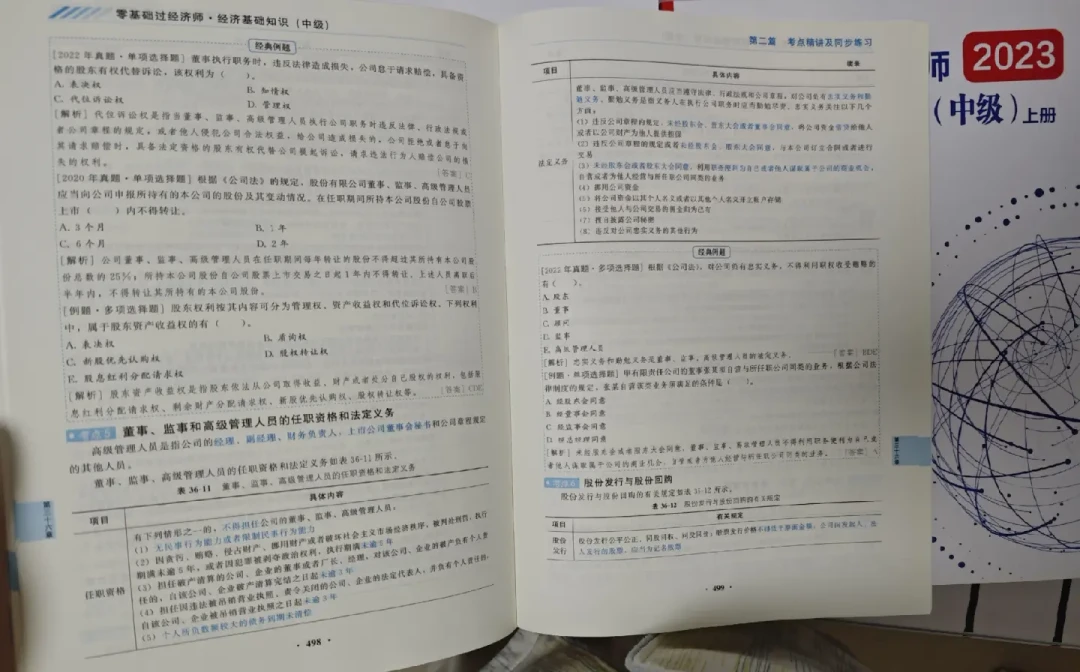 零基础过经济师·经济基础知识（中级）
经典例题
[2022年真题·单项选择题] 董事执行职务时，违反法律造成损失，公司怠于请求赔偿，具备资
格的股东有权代替诉讼，该权利为（　）。
A. 表决权
B. 知情权
C. 代位诉讼权
D. 管理权
[解析] 代位诉讼权是指当董事、监事、高级管理人员执行公司职务时违反法律、行政法规或
者公司章程的规定，或者他人侵犯公司合法权益，给公司造成损失的，公司拒绝或者怠于为
其请求赔偿时，具备法定资格的股东有权代替公司提起诉讼，请求违法行为人赔偿公司的损
失的权利。
[答案] C
[2020年真题·单项选择题] 根据《公司法》的规定，股份有限公司董事、监事、高级管理人员
应当向公司申报所持有的本公司的股份及其变动情况。在任职期间所持本公司股份自公司股票
上市（　）内不得转让。
A. 3个月
B. 1年
C. 6个月
D. 2年
[解析] 公司董事、监事、高级管理人员在任职期间每年转让的股份不得超过其所持有本公司股
份总数的25%；所持本公司股份自公司股票上市交易之日起1年内不得转让。上述人员离职后
半年内，不得转让其所持有的本公司股份。
[答案] B
[例题·多项选择题] 股东权利按其内容可分为管理权、资产收益权和代位诉讼权。下列权利
中，属于股东资产收益权的有（　）。
A. 表决权
B. 质询权
C. 新股优先认购权
D. 股权转让权
E. 股息红利分配请求权
[解析] 股东资产收益权是指股东依法从公司取得收益、财产或者处分自己股权的权利，包括股
息红利分配请求权、剩余财产分配请求权、新股优先认购权、股权转让权等。
[答案] CDE
考点5 董事、监事和高级管理人员的任职资格和法定义务
高级管理人员是指公司的经理、副经理、财务负责人，上市公司董事会秘书和公司章程规定
的其他人员。
董事、监事、高级管理人员的任职资格和法定义务如表36-11所示。
表36-11 董事、监事、高级管理人员的任职资格和法定义务
项目
具体内容
任职资格
有下列情形之一的，不得担任公司的董事、监事、高级管理人员：
(1) 无民事行为能力或者限制民事行为能力
(2) 因贪污、贿赂、侵占财产、挪用财产或者破坏社会主义市场经济秩序，被判处刑罚，执行
期满未逾5年，或者因犯罪被剥夺政治权利，执行期满未逾5年
(3) 担任破产清算的公司、企业的董事或者厂长、经理，对该公司、企业的破产负有个人责
任的，自该公司、企业破产清算完结之日起未逾3年
(4) 担任因违法被吊销营业执照、责令关闭的公司、企业的法定代表人，并负有个人责任的，
自该公司、企业被吊销营业执照之日起未逾3年
(5) 个人所负数额较大的债务到期未清偿
第三十六章
· 498 ·
第二篇 考点精讲及同步练习
续表
项目
具体内容
法定义务
(1) 违反公司章程的规定，未经股东会、股东大会或者董事会同意，将公司资金借贷给他人
或者以公司财产为他人提供担保
(2) 违反公司章程的规定或者未经股东会、股东大会同意，与本公司订立合同或者进行
交易
(3) 未经股东会或者股东大会同意，利用职务便利为自己或者他人谋取属于公司的商业机会，
自营或者为他人经营与所任职公司同类的业务
(4) 挪用公司资金
(5) 将公司资金以其个人名义或者以其他个人名义开立账户存储
(6) 接受他人与公司交易的佣金归为己有
(7) 擅自披露公司秘密
(8) 违反对公司忠实义务的其他行为
经典例题
A. 股东
B. 董事
C. 顾问
D. 监事
E. 高级管理人员
[解析] 忠实义务和勤勉义务是董事、监事、高级管理人员的法定义务。
[答案] BDE
A. 经股东会同意
B. 经董事会同意
C. 经监事会同意
D. 经总经理同意
[答案] A
考点6 股份发行与股份回购
股份发行与股份回购的有关规定如表36-12所示。
表36-12 股份发行与股份回购的有关规定
项目
有关规定
股份
发行
第三十六章
· 499 ·
师 2023
（中级）上册